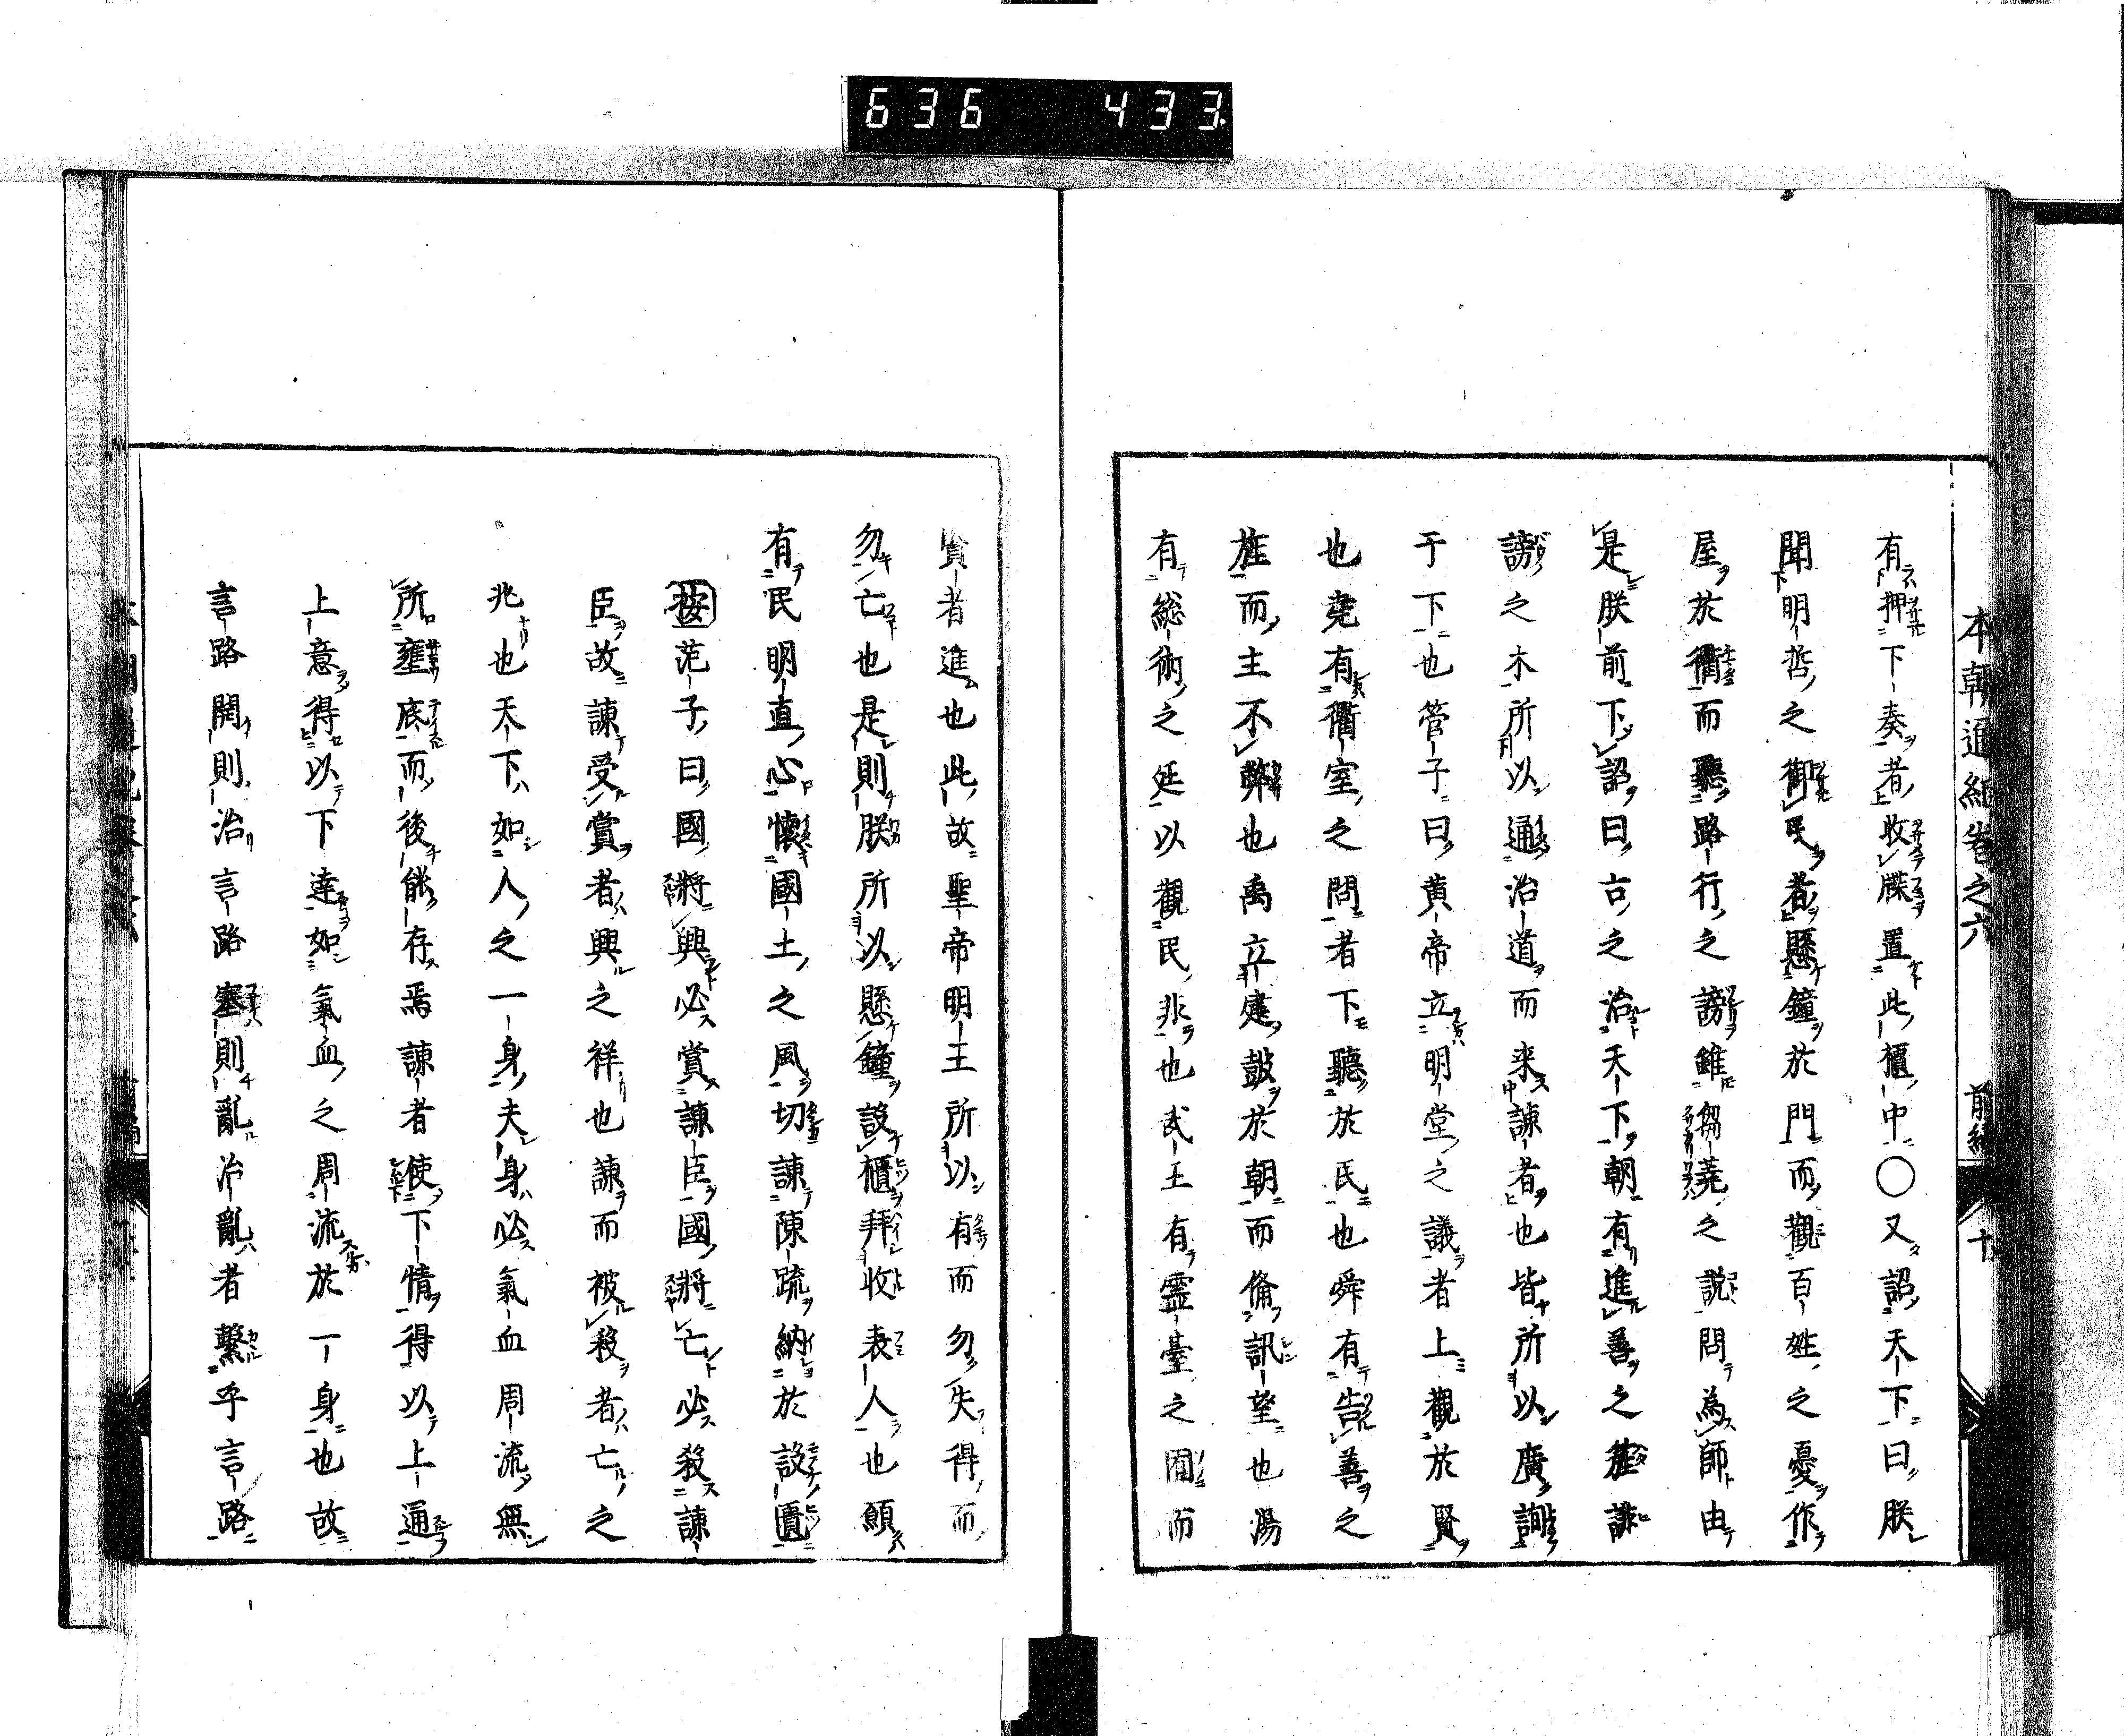 636 433
本朝通紀卷之六 前編 十
有押下奏者收牒置此櫃中○又詔天下曰朕
聞明哲之御民者懸鐘於門而觀百姓之憂作
屋於衢而聽路行之謗雖芻蕘之説問為師由
是朕前下詔曰古之治天下朝有進善之旌誹
謗之木所以通治道而来諫者也皆所以廣詢
于下也管子曰黄帝立明堂之議者上觀於賢
也堯有衢室之問者下聽於民也舜有告善之
旌而主不弊也禹立建鼓於朝而備訊望也湯
有総術之廷以觀民非也武王有霊臺之囿而
賓者進也此故聖帝明王所以有而勿失得而
勿亡也是則朕所以懸鐘設櫃拜收表人也願
有民明直心懷國土之風切諫陳疏納於設匱
按范子曰國將興必賞諫臣國將亡必殺諫
臣故諫受賞者興之祥也諫而被殺者亡之
兆也天下如人之一身夫身必氣血周流無
所壅底而後能存焉諫者使下情得以上通
上意得以下達如氣血之周流於一身也故
言路開則治言路塞則亂治亂者繫乎言路